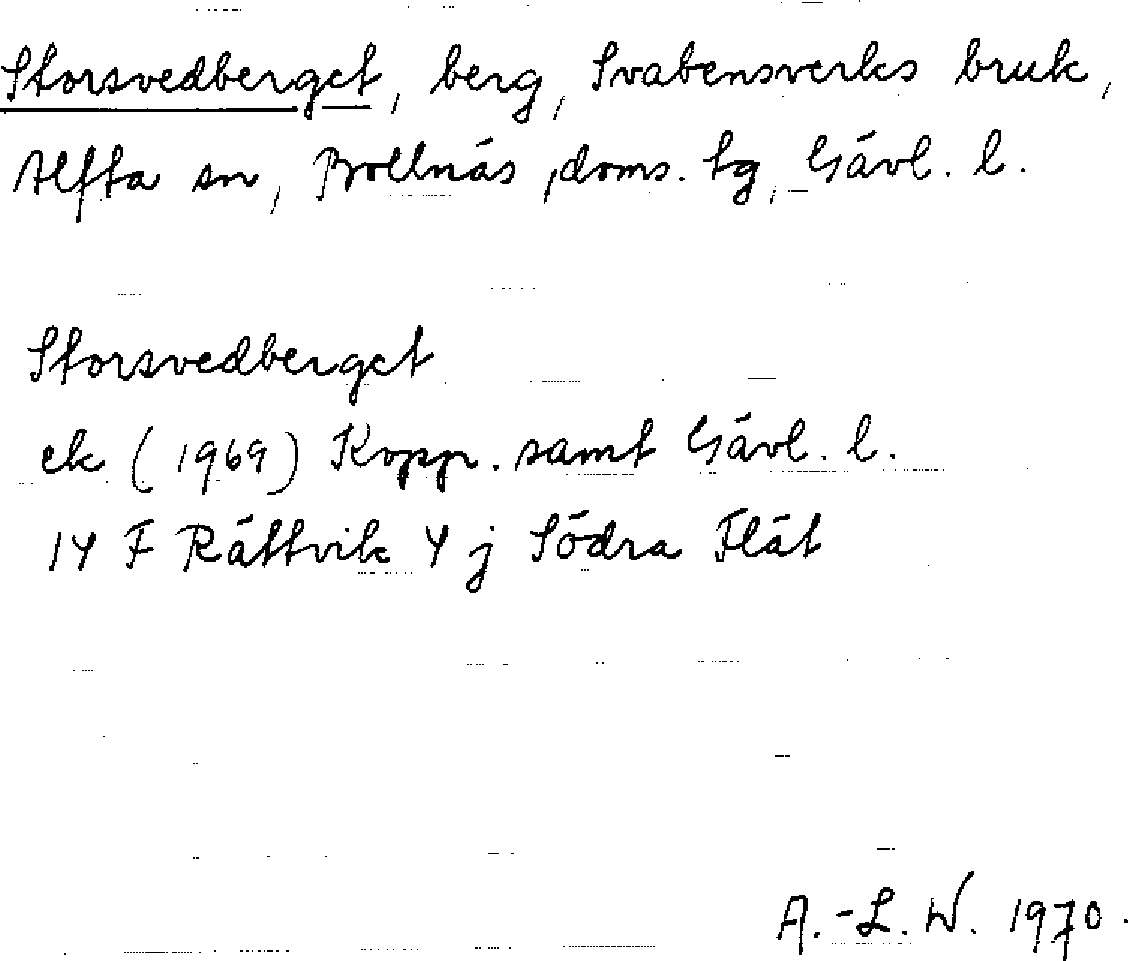 Storsvedberget, berg, Svabensverks bruk,
Alfta sn, Bollnäs, doms. tg, Gävl. l.
Storsvedberget
ek (1969) Kopp. samt Gävl. l.
14 F Rättvik 4 j Södra Flät
A.-L. W. 1970.